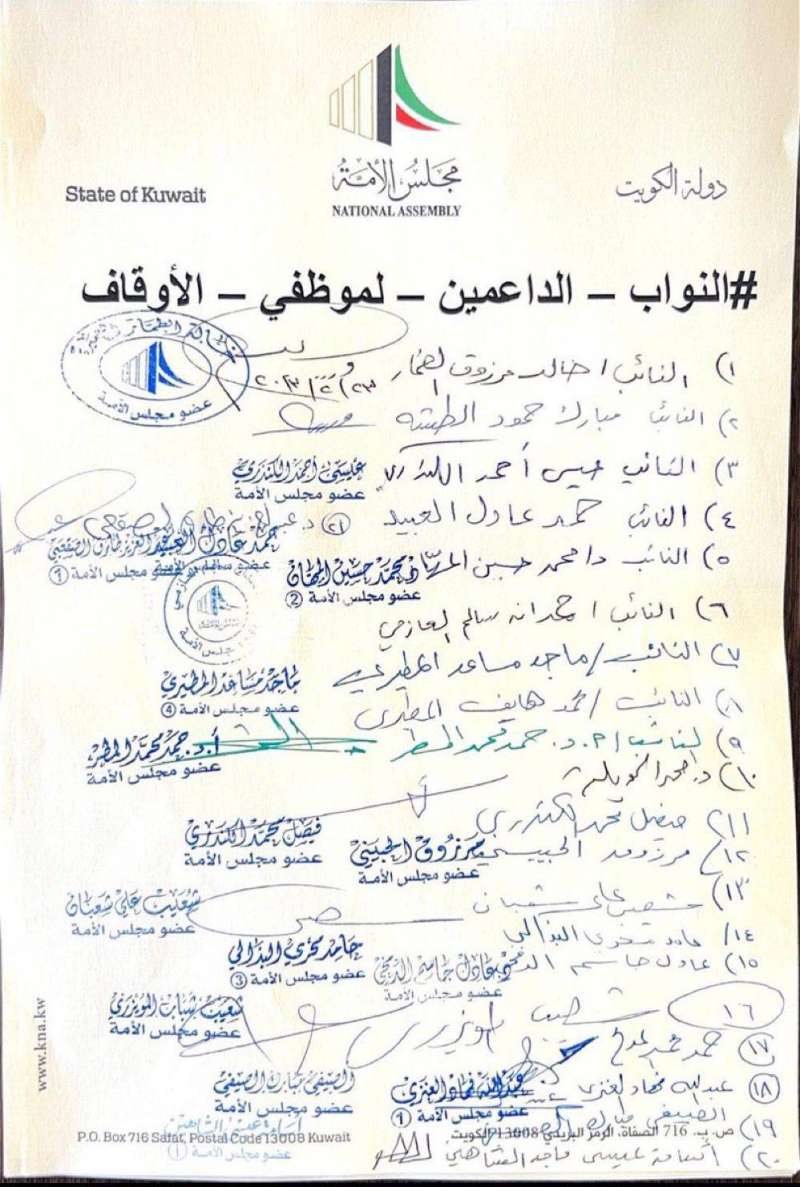 مجلس الأمة
NATIONAL ASSEMBLY
State of Kuwait
دولة الكويت
#النواب – الداعمين – لموظفي – الأوقاف
١) النائب / خالد مرزوق العمار
٢٠٢٣/٢/٢٣
عضو مجلس الأمة
٢) النائب مبارك حمود الطشه
٣) النائب عيسى أحمد الكندري
عيسى أحمد الكندري
عضو مجلس الأمة
٤) النائب حمد عادل العبيد
٢١ د. عبدالعزيز طارق الصقعبي
حمد عادل العبيد
عبدالعزيز طارق الصقعبي
عضو مجلس الأمة
عضو مجلس الأمة ①
٥) النائب د/محمد حسين المهان
د. محمد حسين المهان
عضو مجلس الأمة ②
٦) النائب / حمدان سالم العازمي
٧) النائب / ماجد مساعد المطيري
ماجد مساعد المطيري
عضو مجلس الأمة ④
٨) النائب / محمد هايف المطيري
٩) النائب / أ.د. حمد محمد المطر
أ.د. حمد محمد المطر
عضو مجلس الأمة
١٠) د.
١١) فيصل محمد الكندري
فيصل محمد الكندري
عضو مجلس الأمة
١٢) مرزوق الحبيني
مرزوق الحبيني
عضو مجلس الأمة
١٣) شعيب علي شعبان
شعيب علي شعبان
عضو مجلس الأمة
١٤) حامد محري البذالي
حامد محري البذالي
عضو مجلس الأمة ③
١٥) عادل جاسم الدمخي
عادل جاسم الدمخي
عضو مجلس الأمة
١٦ شعيب المويزري
شعيب شباب المويزري
عضو مجلس الأمة
١٧ حمد محمد المدلج
١٨ عبدالله فهاد العنزي
عبدالله فهاد العنزي
عضو مجلس الأمة ①
١٩) الصيفي مبارك الصيفي
الصيفي مبارك الصيفي
عضو مجلس الأمة
٢٠) أسامة عيسى ماجد الشاهين
أسامة عيسى الشاهين
عضو مجلس الأمة ①
www.kna.kw
P.O. Box 716 Safat, Postal Code 13008 Kuwait
ص.ب. 716 الصفاة، الرمز البريدي 13008 الكويت